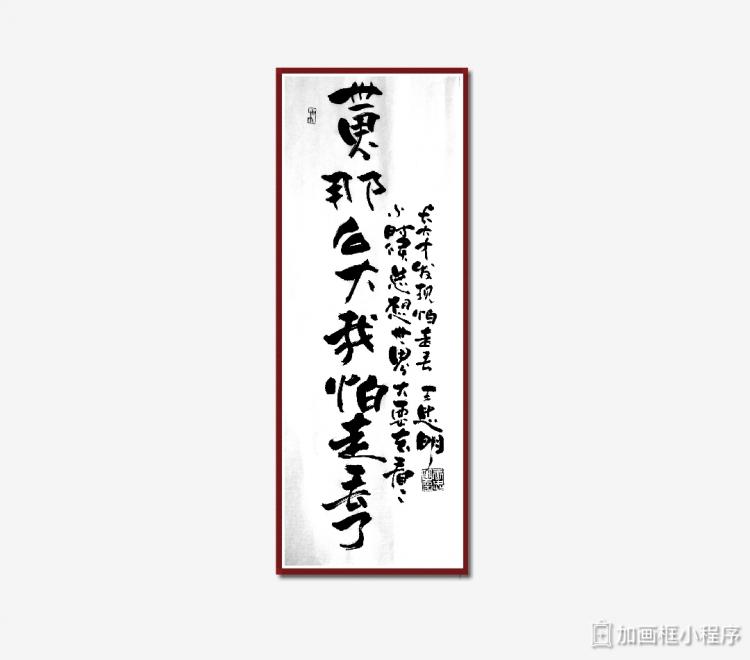 世界那么大我怕走丢了
小时候总想世界大要去看〻
长大才发现怕走丢 王
加画框小程序